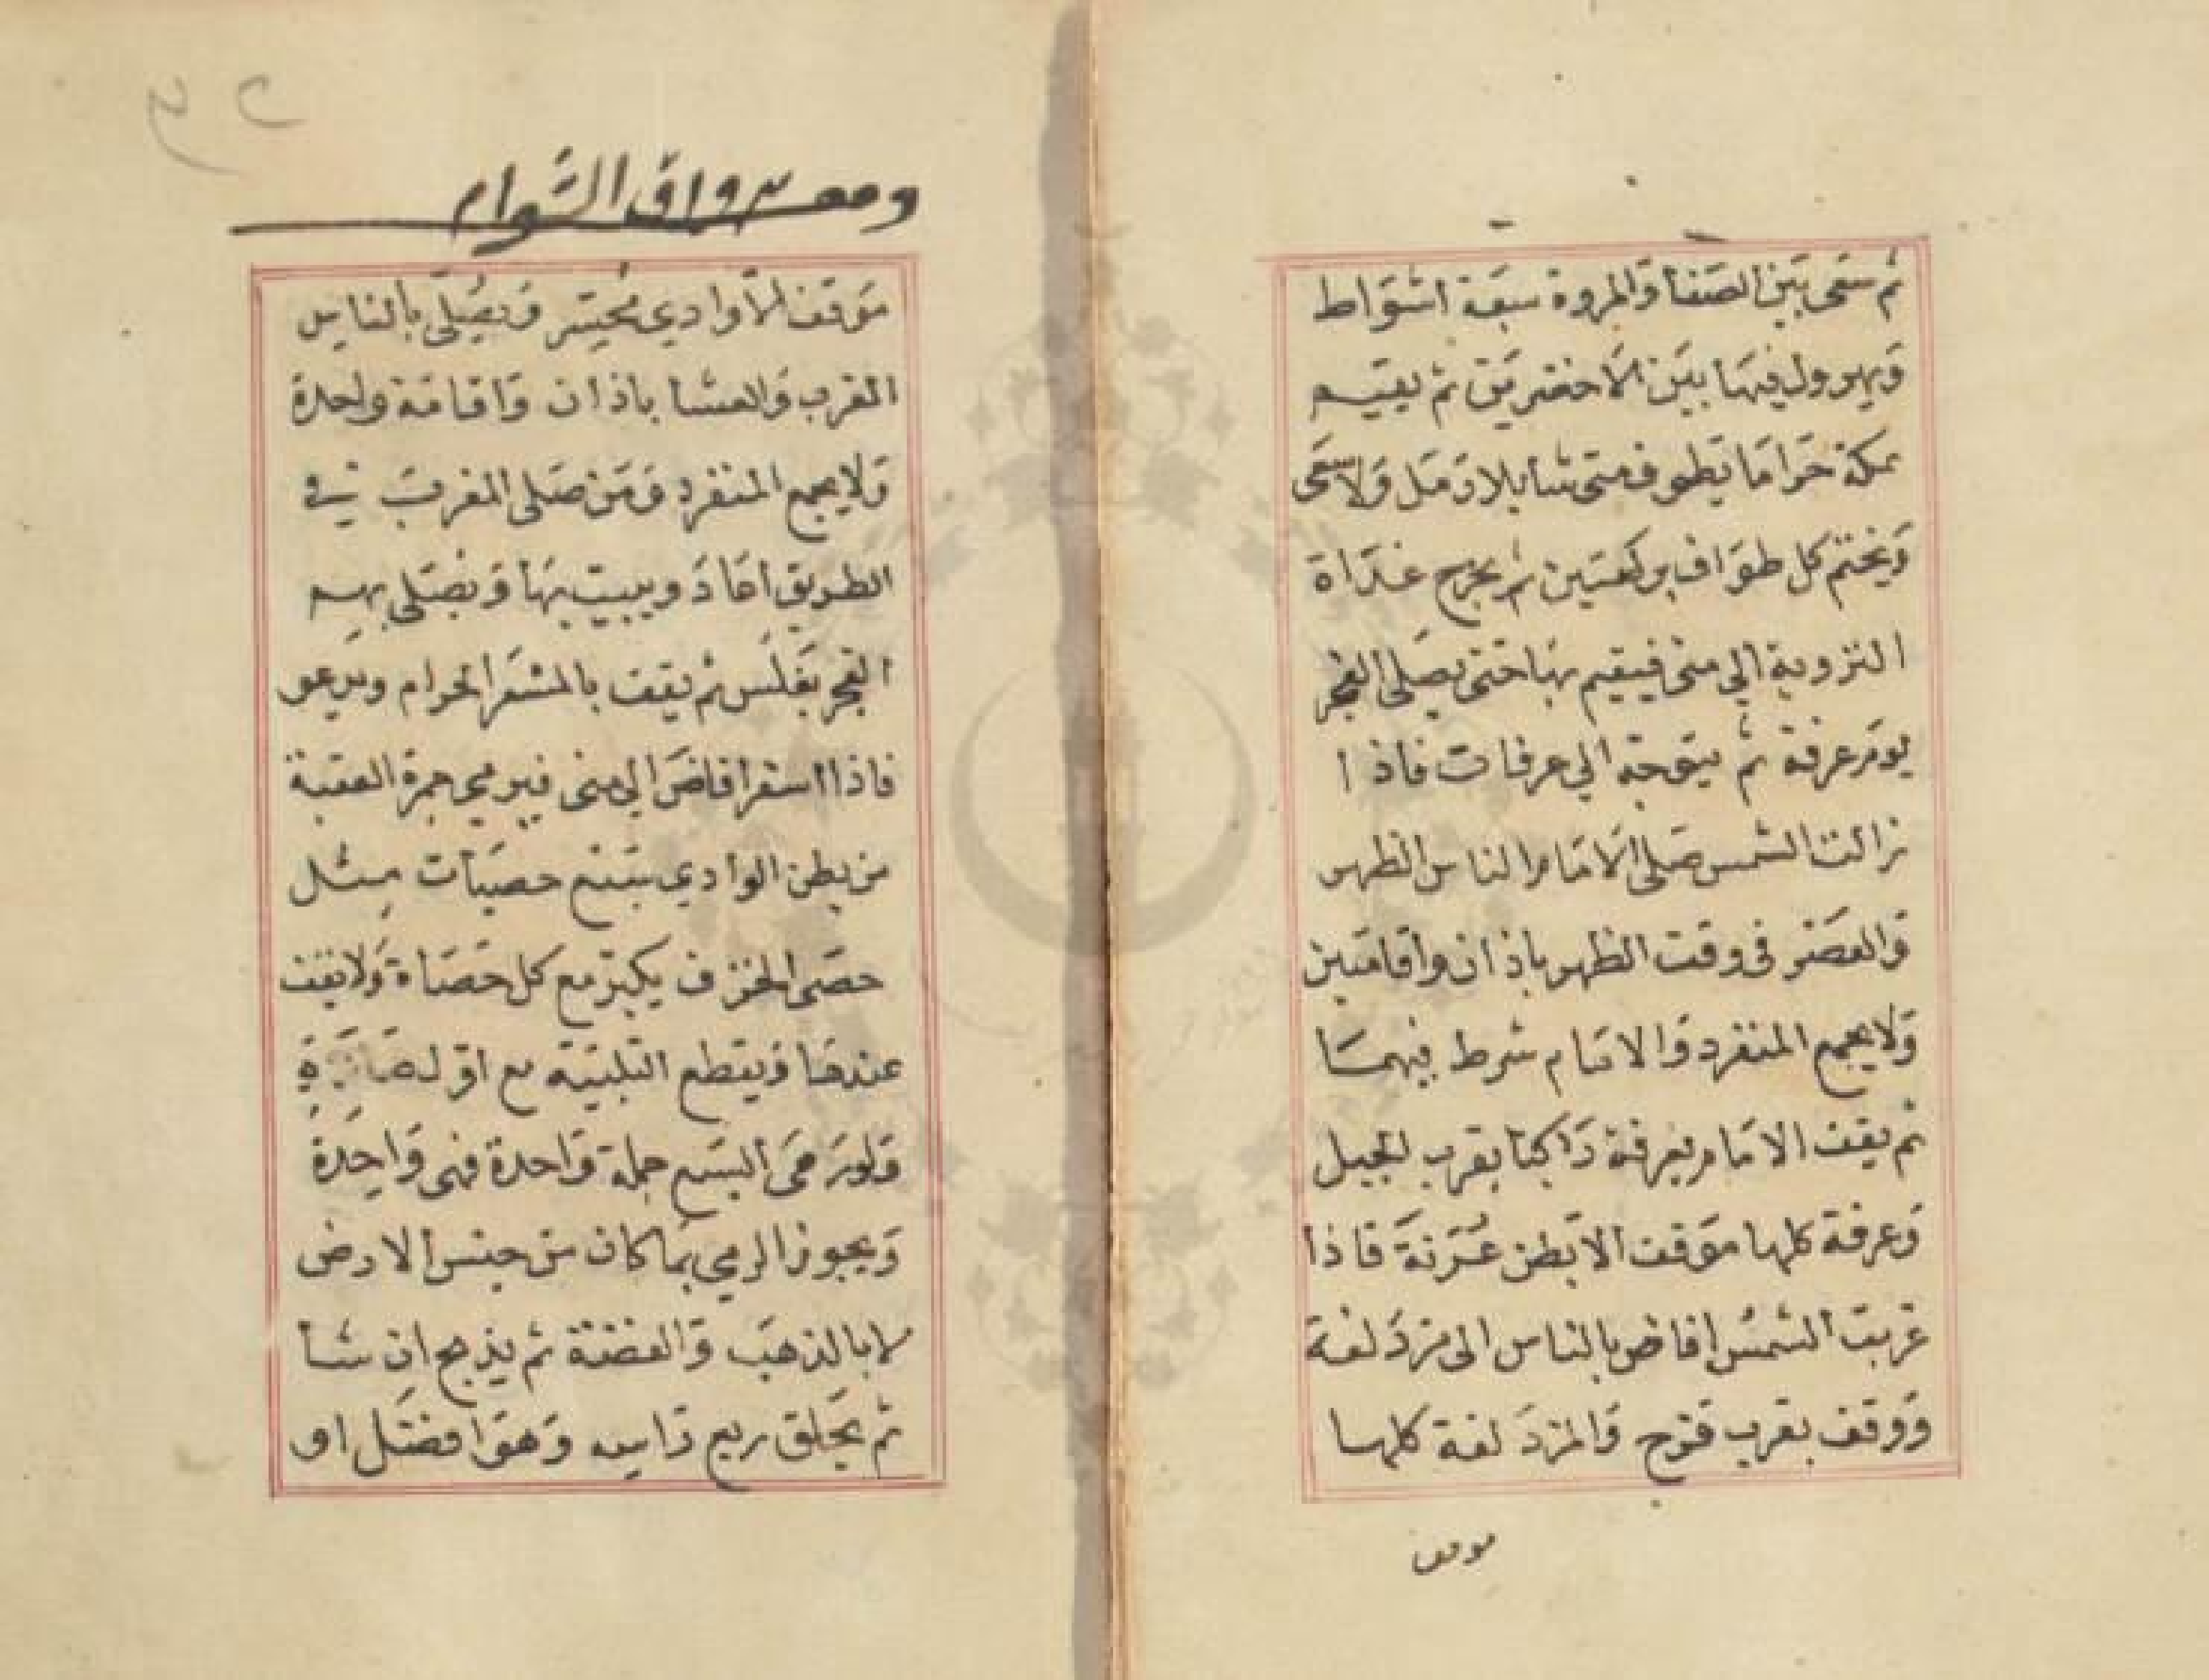 ثم سَعَى بَيْن الصَفَا وَالمروة سَبعَة اشوَاط
وَيهرول فيهَا بَيَن الاخضريَن ثم يقيم
بمكة حَرامَا يَطوف متى شا بلا رَمَل وَلا سَعَى
وَيختم كل طوَاف بركعتين ثم يخرج غدَاة
التزوية الي منى فيقيم بهَا حتى يصَلى الفجر
يومَ عرفة ثم يتوَجه الي عرفات فاذا
زالت الشمس صَلى الامَام بالناس الظهر
وَالعصَر فى وقت الظهر باذان واقامتين
وَلا يجمع المنفرد وَالامَام شرط فيهمَا
ثم يقف الامَام بعرفة رَاكبا بقرب الجبل
وَعرفة كلها مَوقف الا بَطن عُرَنَةَ فَاذا
غربت الشمس افاض بالناس الى مزدَلفة
وَوقف بقرب قزح وَالمزدَلفة كلها
موقف
ومعه رواق الشوام
مَوقف الا وَادي مُحَسِّر وَيصُلّى بالناس
المغرب وَالعشا باذان وَاقامَة واحدة
وَلا يجمع المنفرد وَمَن صَلى المغربَ في
الطريق اعَادَ ويبيت بهَا وَيصَلى بهم
الفجر بغَلَس ثم يقف بالمشعَر الحرام ويدعو
فاذا اسفر افاضَ الي منى فيرمي جمرة العقبة
من بطن الوادي بسَبع حصيَات مِثل
حصَى الخزف يكبّر مع كل حَصَاة وَلا يقف
عندهَا وَيقطع التلبيَة مع اوّل
وَلو رَمَى السَبع جملة وَاحدة فهى وَاحِدَة
وَيجوز الرمي بمَا كان مَن جنس الارض
لا بالذهَب وَالفضة ثم يذبح ان شَا
ثم يَحلق ربع رَاسِه وَهوَ افضَل او